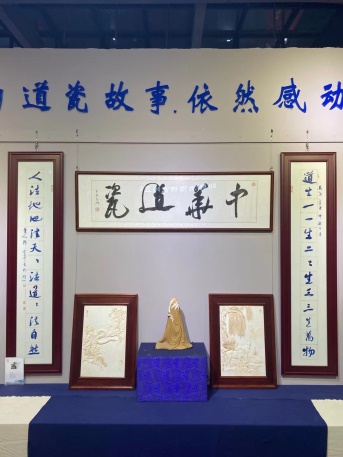 道瓷故事.依然感动
中華道瓷
道生一一生二二生三三生萬物
人法地地法天〻法道〻法自然